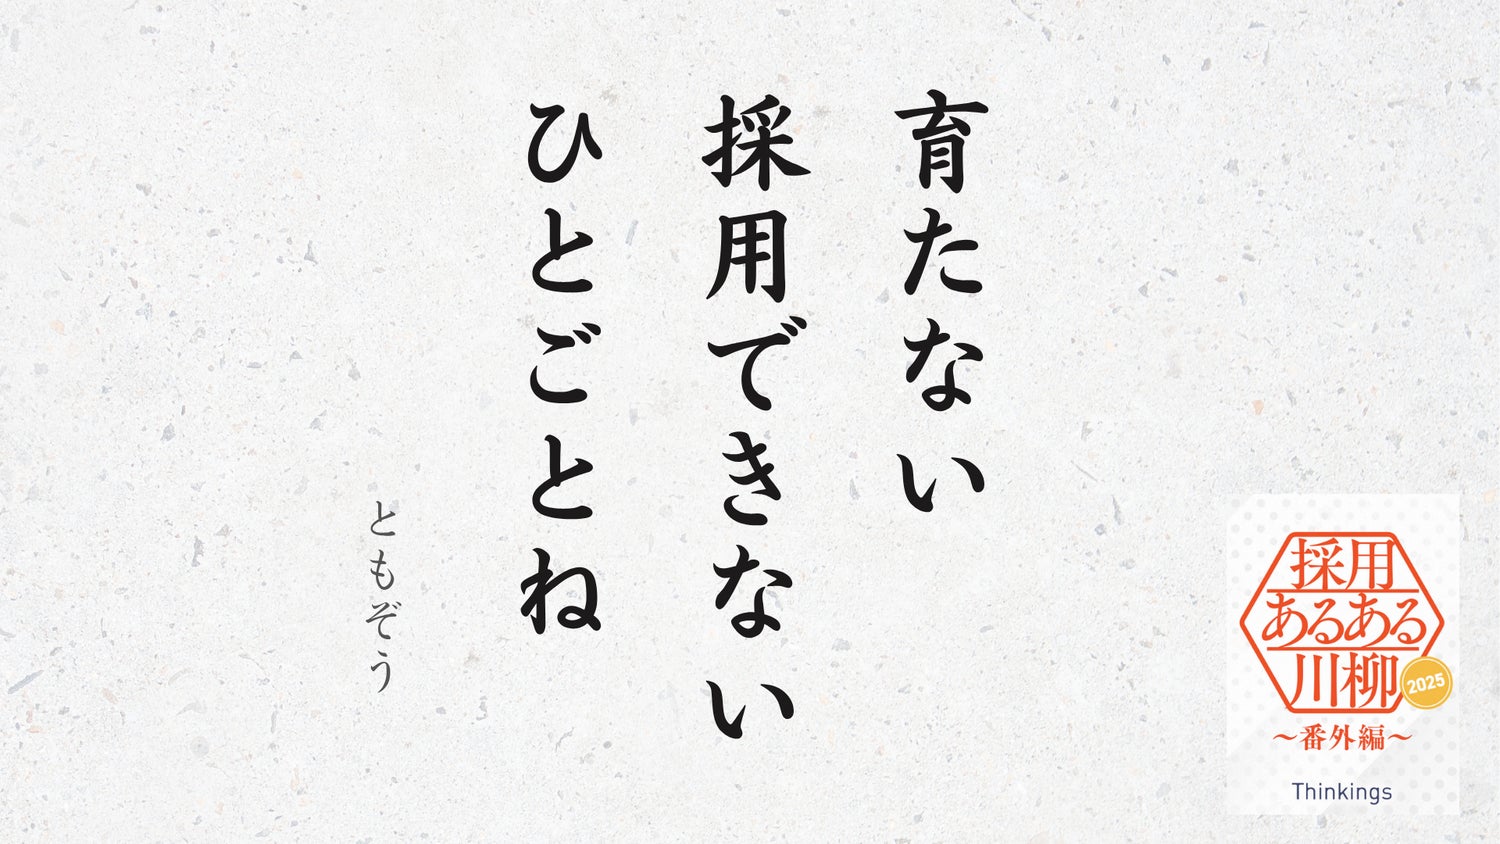 育たない
採用できない
ひとごとね
ともぞう
採用
あるある
川柳
2025
～番外編～
Thinkings